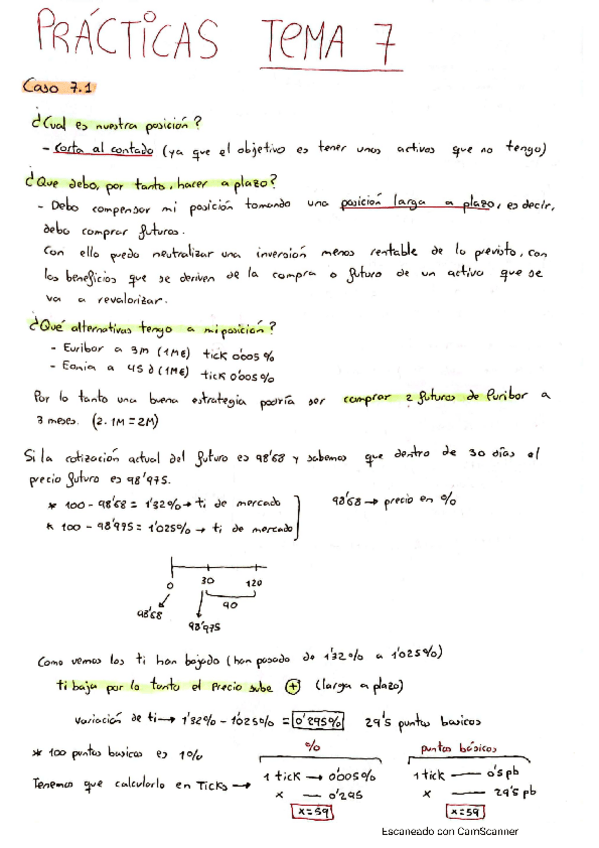 PRÁCTICAS TEMA 7
Caso 7.1
¿Cual es nuestra posición?
- Corta al contado (ya que el objetivo es tener unos activos que no tengo)
¿Que debo, por tanto, hacer a plazo?
- Debo compensar mi posición tomando una posición larga a plazo, es decir,
debo comprar futuros.
Con ello puedo neutralizar una inversión menos rentable de lo previsto, con
los beneficios que se deriven de la compra a futuro de un activo que se
va a revalorizar.
¿Qué alternativas tengo a mi posición?
- Euribor a 3m (1M€) tick 0'005%
- Eonia a 45 d (1M€) tick 0'005%
Por lo tanto una buena estrategia podría ser comprar 2 futuros de Euribor a
3 meses. (2·1M=2M)
Si la cotización actual del futuro es 98'68 y sabemos que dentro de 30 días el
precio futuro es 98'975.
* 100 - 98'68 = 1'32% → ti de mercado
98'68 → precio en %
* 100 - 98'975 = 1'025% → ti de mercado
0 30 120
90
98'68
98'975
Como vemos los ti han bajado (han pasado de 1'32% a 1'025%)
ti baja por lo tanto el Precio sube + (larga a plazo)
Variación de ti → 1'32% - 1'025% = 0'295% 29'5 puntos basicos
* 100 puntos basicos es 1%
% puntos básicos
Tenemos que calcularlo en Ticks → 1 tick → 0'005% 1 tick — 0'5 pb
x — 0'295 x — 29'5 pb
x=59 x=59
Escaneado con CamScanner